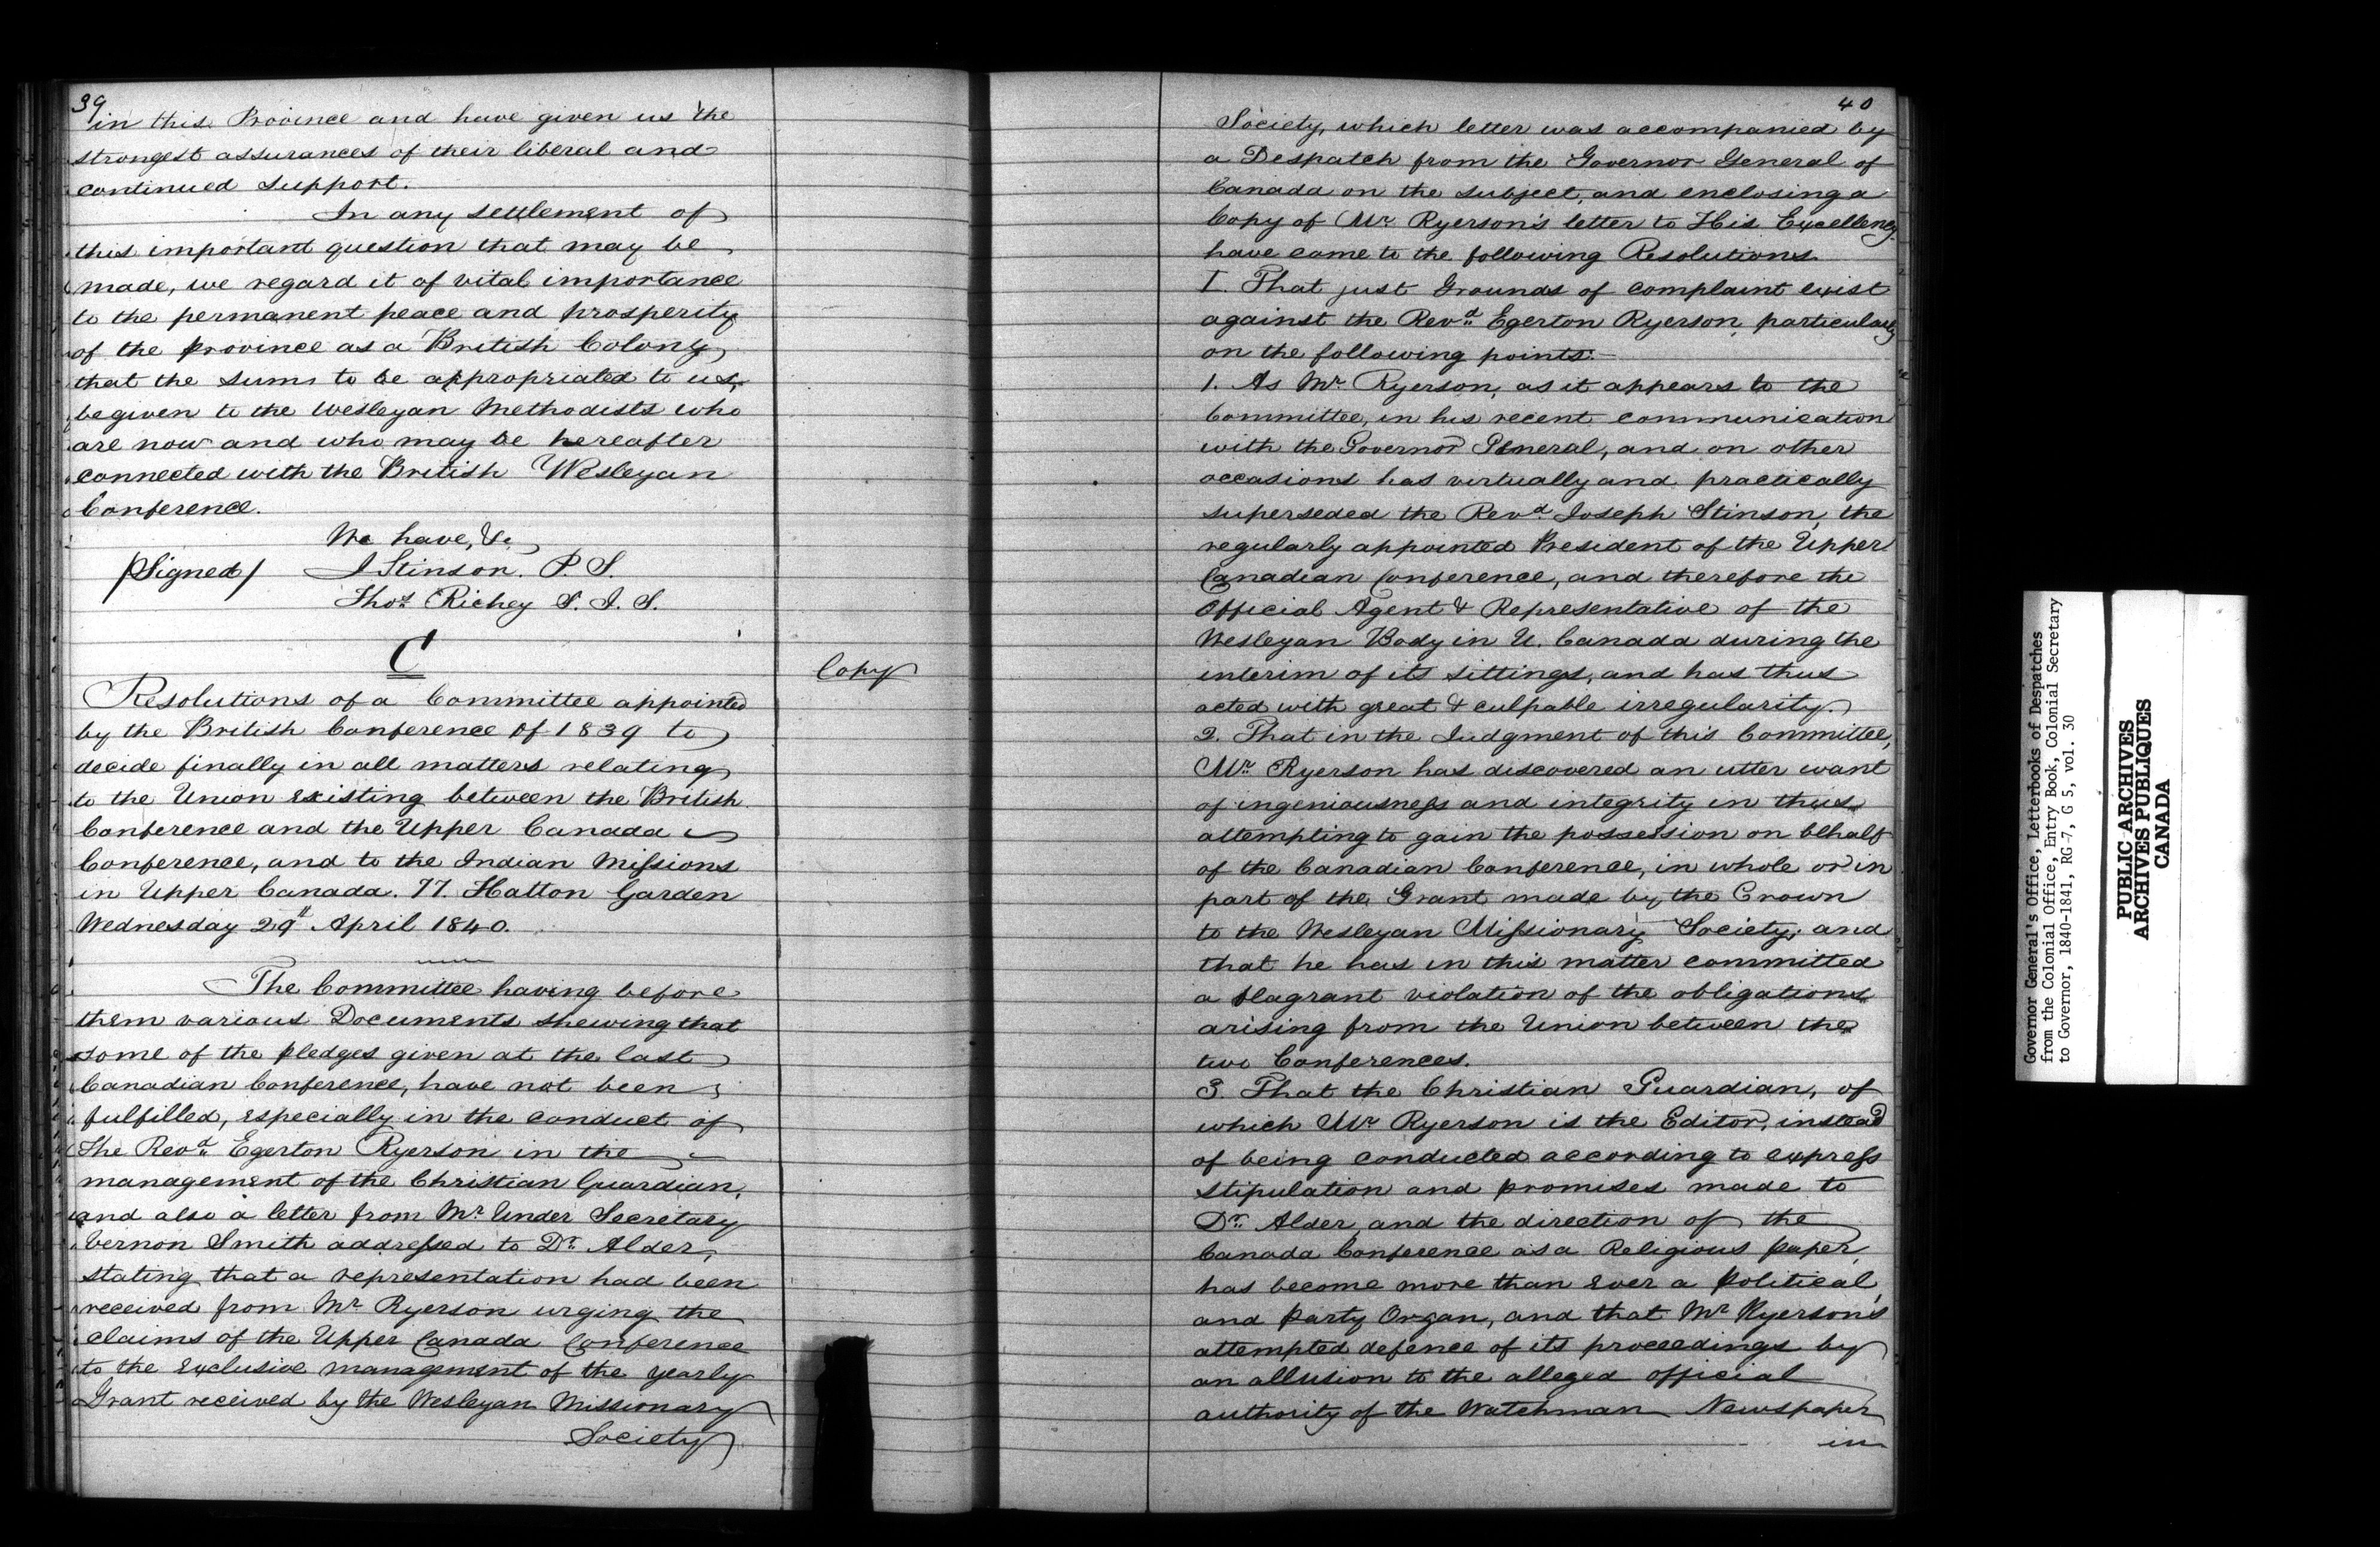 39
in this Province and have given us the
strongest assurances of their liberal and
continued support.
In any settlement of
this important question that may be
made, we regard it of vital importance
to the permanent peace and prosperity
of the province as a British Colony,
that the sums to be appropriated to us,
be given to the Wesleyan Methodists who
are now and who may be hereafter
connected with the British Wesleyan
Conference.
We have, &c
/Signed/ J Stinson. P. S.
Thos Richey S. I. S.
C
Copy
Resolutions of a Committee appointed
by the British Conference of 1839 to
decide finally in all matters relating
to the Union existing between the British
Conference and the Upper Canada
Conference, and to the Indian Missions
in Upper Canada. 77. Hatton Garden
Wednesday 29th April 1840.
The Committee having before
them various Documents shewing that
some of the pledges given at the last
Canadian Conference, have not been
fulfilled, especially in the conduct of
the Revd Egerton Ryerson in the
management of the Christian Guardian,
and also a letter from Mr Under Secretary
Vernon Smith addressed to Dr Alder,
stating that a representation had been
received from Mr Ryerson urging the
claims of the Upper Canada Conference
to the exclusive management of the yearly
Grant received by the Wesleyan Missionary
Society
40
Society, which letter was accompanied by
a Despatch from the Governor General of
Canada on the subject, and enclosing a
Copy of Mr Ryerson's letter to His Excellency
have come to the following Resolutions.
I. That just Grounds of complaint exist
against the Revd Egerton Ryerson particularly
on the following points:-
1. As Mr Ryerson, as it appears to the
Committee, in his recent communication
with the Governor General, and on other
occasions has virtually and practically
superseded the Revd Joseph Stinson, the
regularly appointed President of the Upper
Canadian Conference, and therefore the
Official Agent & Representative of the
Wesleyan Body in U. Canada during the
interim of its sittings, and has thus
acted with great & culpable irregularity.
2. That in the Judgment of this Committee,
Mr Ryerson has discovered an utter want
of ingeniousness and integrity in thus
attempting to gain the possession on behalf
of the Canadian Conference, in whole or in
part of the Grant made by the Crown
to the Wesleyan Missionary Society; and
that he has in this matter committed
a flagrant violation of the obligations
arising from the Union between the
two Conferences.
3. That the Christian Guardian, of
which Mr Ryerson is the Editor, instead
of being conducted according to express
stipulation and promises made to
Dr. Alder, and the direction of the
Canada Conference as a Religious paper,
has become more than ever a political,
and party Organ, and that Mr Ryerson's
attempted defence of its proceedings by
an allusion to the alleged official
authority of the Watchman Newspaper
in
Governor General's Office, Letterbooks of Despatches
from the Colonial Office, Entry Book, Colonial Secretary
to Governor, 1840-1841, RG-7, G 5, vol. 30
PUBLIC ARCHIVES
ARCHIVES PUBLIQUES
CANADA